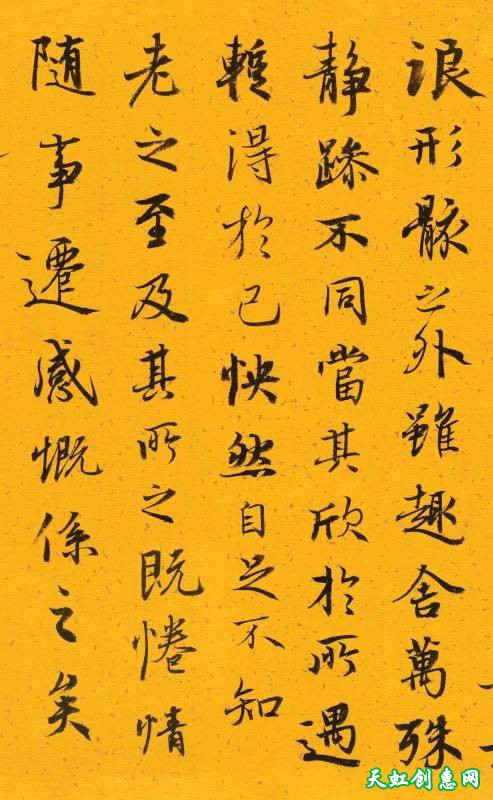 浪形骸之外雖趣舍萬殊
静躁不同當其欣於所遇
暫得於己怏然自足不知
老之至及其所之既惓情
随事遷感慨係之矣
天虹创惠网